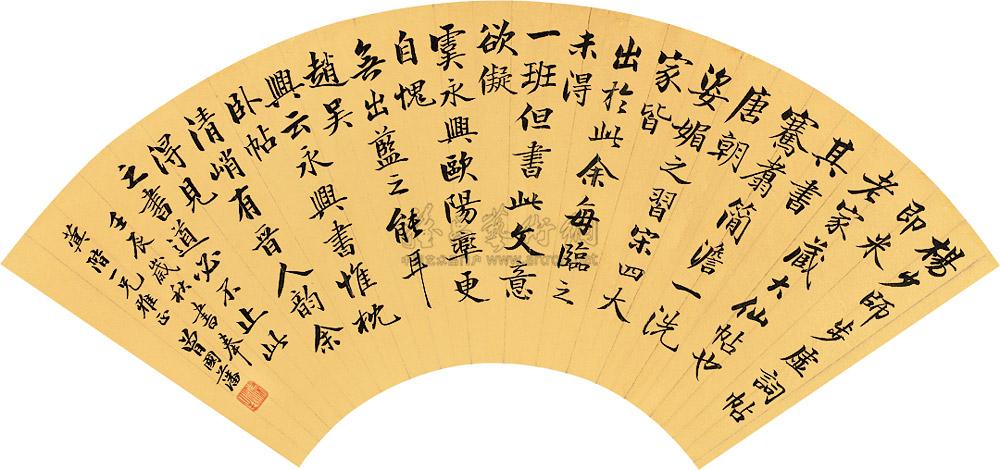 楊少師步虛詞帖
即米
老家藏大仙帖也
其書
騫翥簡澹一洗
唐朝
姿媚之習宋四大
家皆
出於此余每臨之
未得
一班但書此文意
欲儗
虞永興歐陽率更
自愧
無出藍之能耳
趙吳
興云永興書惟枕
臥帖
清峭有晉人韻余
淂見
之書道必不止此
壬辰歲秋書奉
蓂階一兄雅正
曾國藩